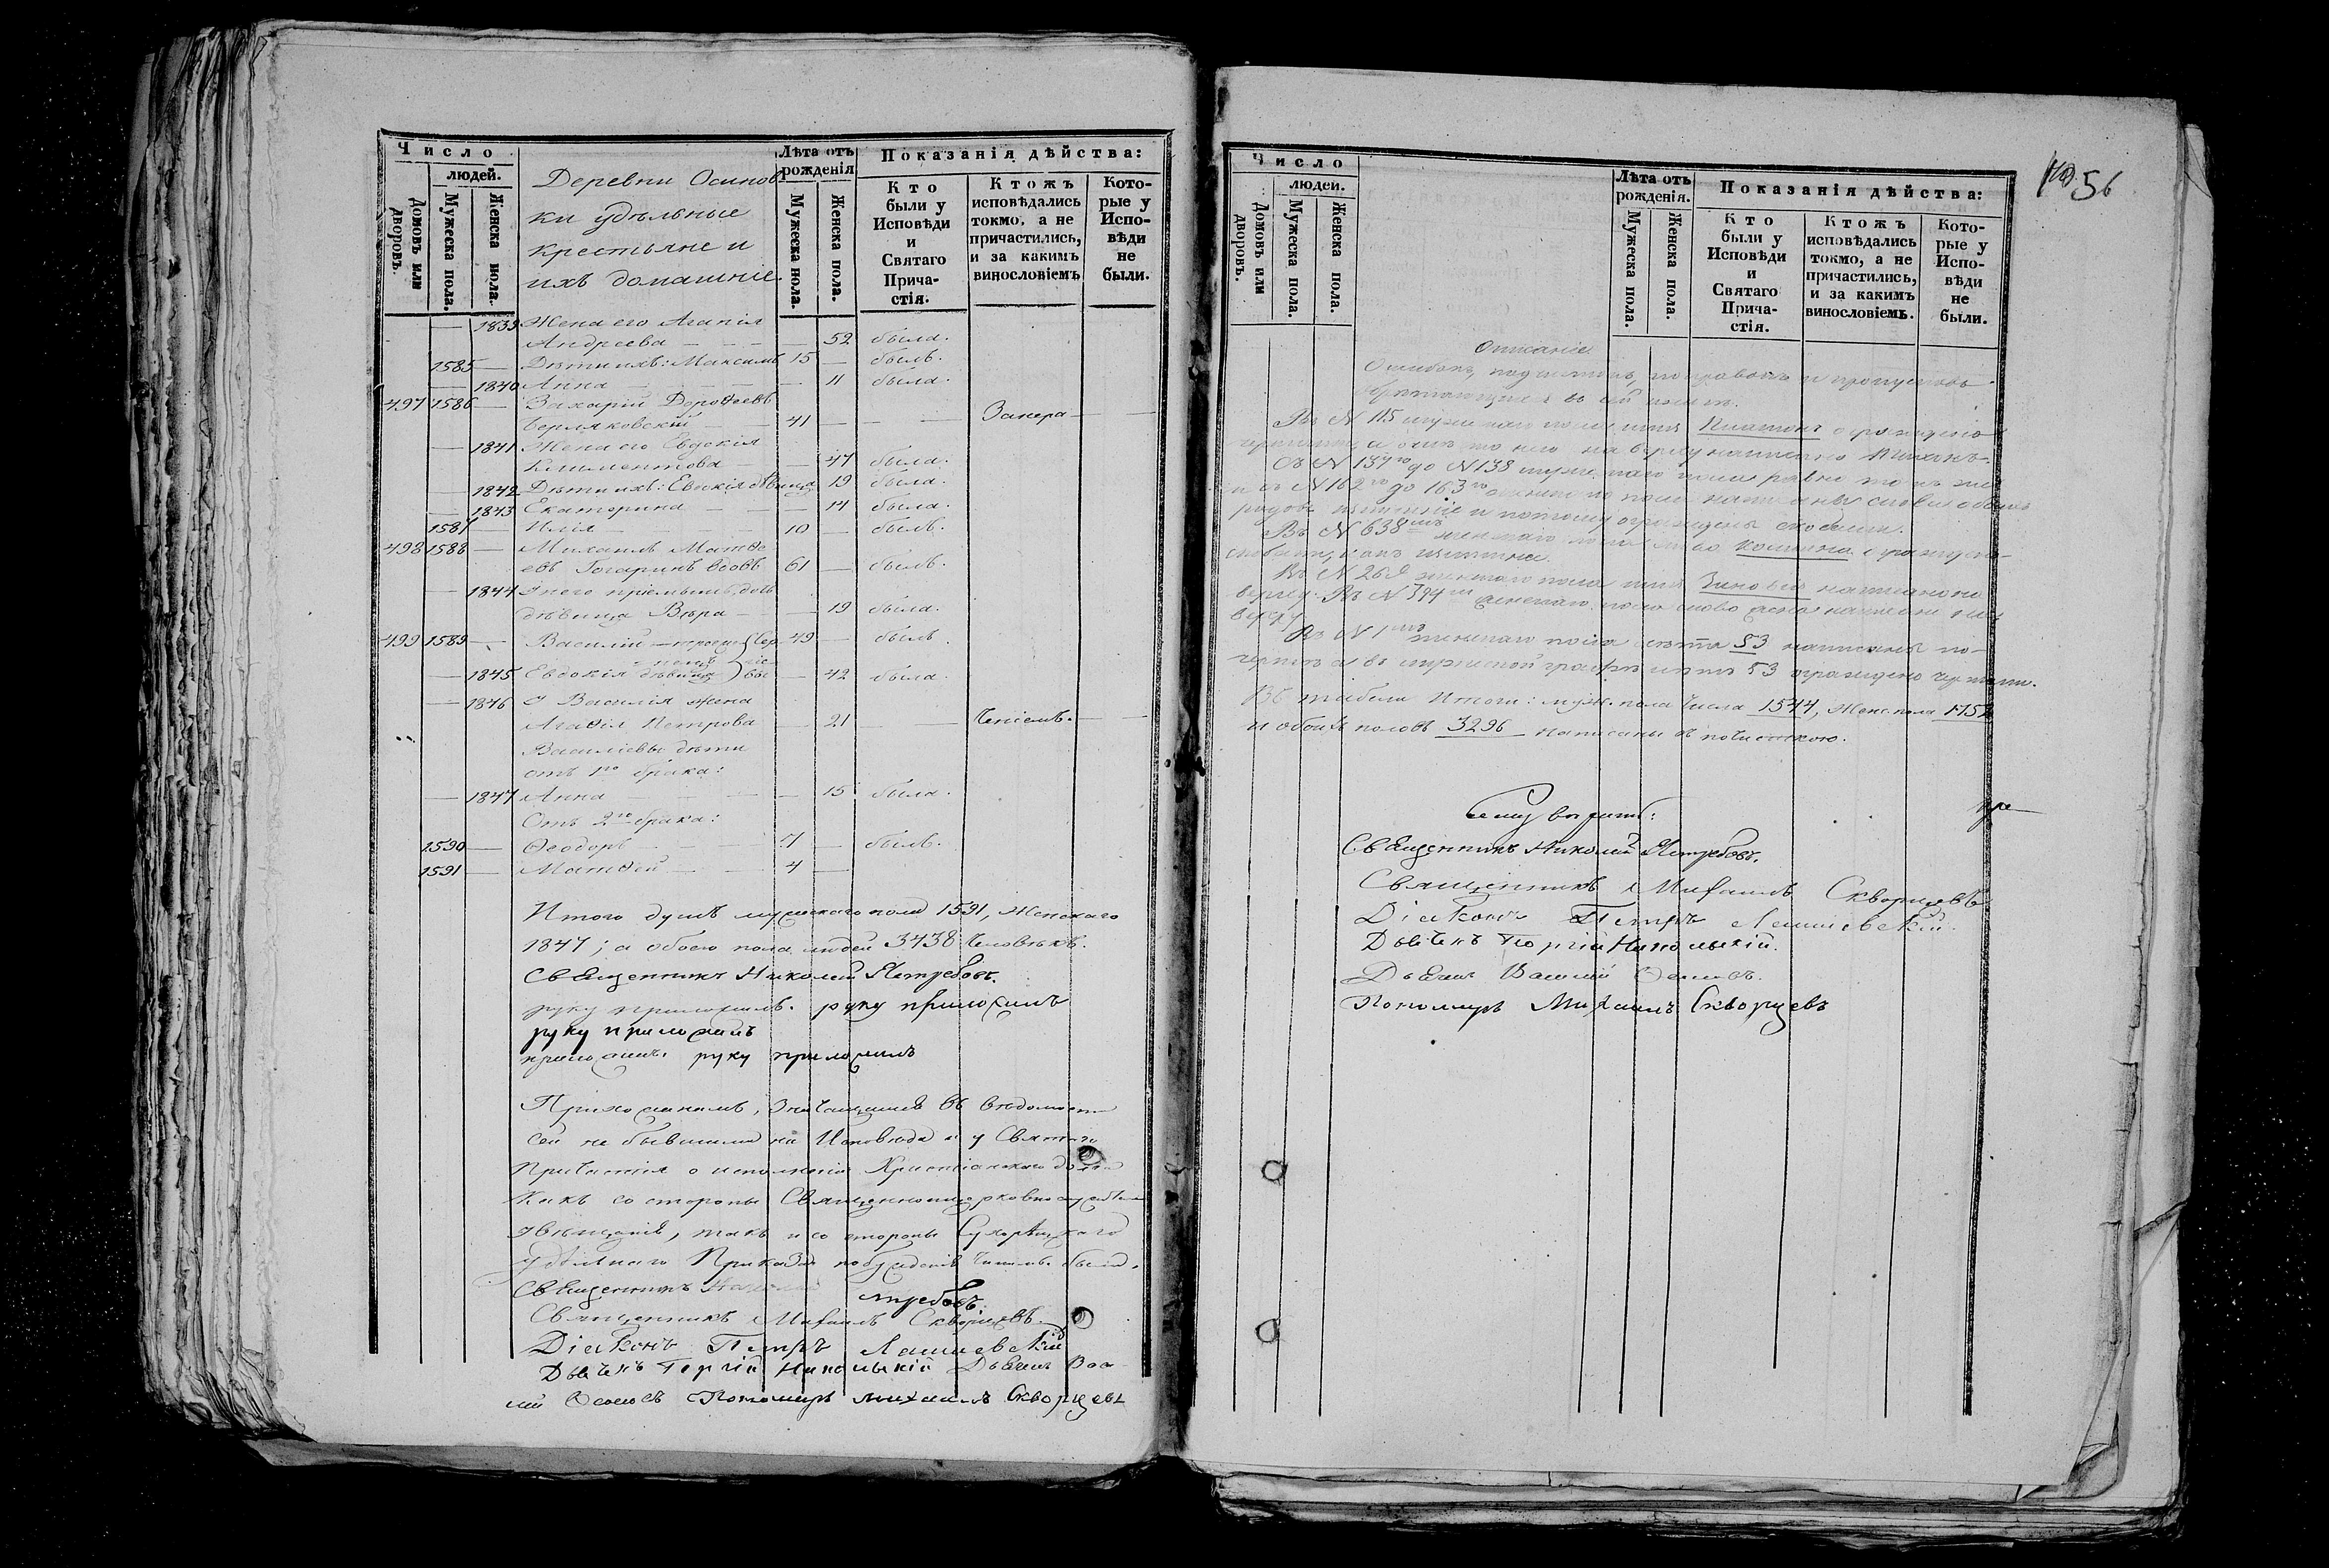 Число
людей.
Домовъ или дворовъ.
Мужеска пола.
Женска пола.
Деревни Осинов-
ки удѣльные
крестьяне и
ихъ домашніе
Лѣта отъ
рожденія
Мужеска пола.
Женска пола.
Показанія дѣйства:
Кто
были у
Исповѣди
и
Святаго
Прича-
стія.
Ктожъ
исповѣдались
токмо, а не
причастились,
и за какимъ
винословіемъ
Кото-
рые у
Испо-
вѣди
не
были.
— 1839 Жена его Агапія
Андреева — — 52 была.
1585 — Дѣти ихъ: Максимъ 15 — былъ.
— 1840 Анна — — 11 была.
497 1586 — Захарій Дороѳеевъ
41 — —
— 1841 Жена его Евдокія
Климентова — — 47 была.
— 1842 Дѣти ихъ: Евдокія дѣвица 19 была.
— 1843 Екатерина — — 14 была.
1587 — Илія — 10 — былъ.
498 1588 — Михаилъ Матѳе-
евъ вдовъ 61 — былъ.
— 1844 У него пріемышъ, дочь
дѣвица Вѣра — — 19 была.
499 1589 — Василій 49 — былъ
— 1845 Евдокія дѣвица — 42 была.
— 1846 У Василія жена
Агаѳія Петрова — 21 —
Василіевы дѣти
отъ 1го брака:
— 1847 Анна — — 15 была.
Отъ 2го брака:
1590 — Ѳеодоръ — 7 — былъ.
1591 — Матѳей — 4 —
Итого душъ мужескаго пола 1591, Женскаго
1847; а обоего пола людей 3438 Человѣкъ.
Священникъ Николай Ястребовъ.
руку приложилъ. руку приложилъ
руку приложилъ
приложилъ. руку приложилъ
Прихожанамъ, значащимся въ вѣдомости
сей не бывшими на Исповѣди и у Святаго
Причастія о исполненіи Христіанскаго долга
какъ со стороны Священноцерковнослужителей
увѣщаніе, такъ и со стороны
Удѣльнаго Приказа побужденіе чинимо было.
Священникъ Николай Ястребовъ.
Священникъ Михаилъ Скворцевъ.
Діаконъ Петръ
Дьячекъ Георгій Никольскій Дьячекъ Васи-
лій Пономарь Михаилъ Скворцевъ
56
Число
людей.
Домовъ или дворовъ.
Мужеска пола.
Женска пола.
Лѣта отъ
рожденія.
Мужеска пола.
Женска пола.
Показанія дѣйства:
Кто
были у
Исповѣди
и
Святаго
Прича-
стія.
Ктожъ
исповѣдались
токмо, а не
причастились,
и за какимъ
винословіемъ.
Кото-
рые у
Испо-
вѣди
не
были.
Описаніе
Ошибокъ, подчистокъ, поправокъ и пропусковъ
въ сей книгѣ.
Въ N 115 мужескаго пола имя
Съ N 137го до N 138 мужескаго пола
и съ N 162го до 163го женскаго пола
и потому ограждены скобками.
Въ N 638мъ женскаго пола слово
Въ N 269 женскаго пола имя Зиновья написано на
верху. Въ N 394 женскаго пола слово написано на
верху
Въ N 1мъ женскаго пола лѣта 53 написаны по-
53 ограждено чертами.
Въ табели Итоги: муж. пола числа 1544, Женс. пола 1752
и обоихъ половъ 3296 написаны съ подчисткою.
Священникъ Николай Ястребовъ.
Священникъ Михаилъ Скворцевъ
Діаконъ Петръ
Дьячекъ Георгій Никольскій.
Дьячекъ Василій
Пономарь Михаилъ Скворцевъ